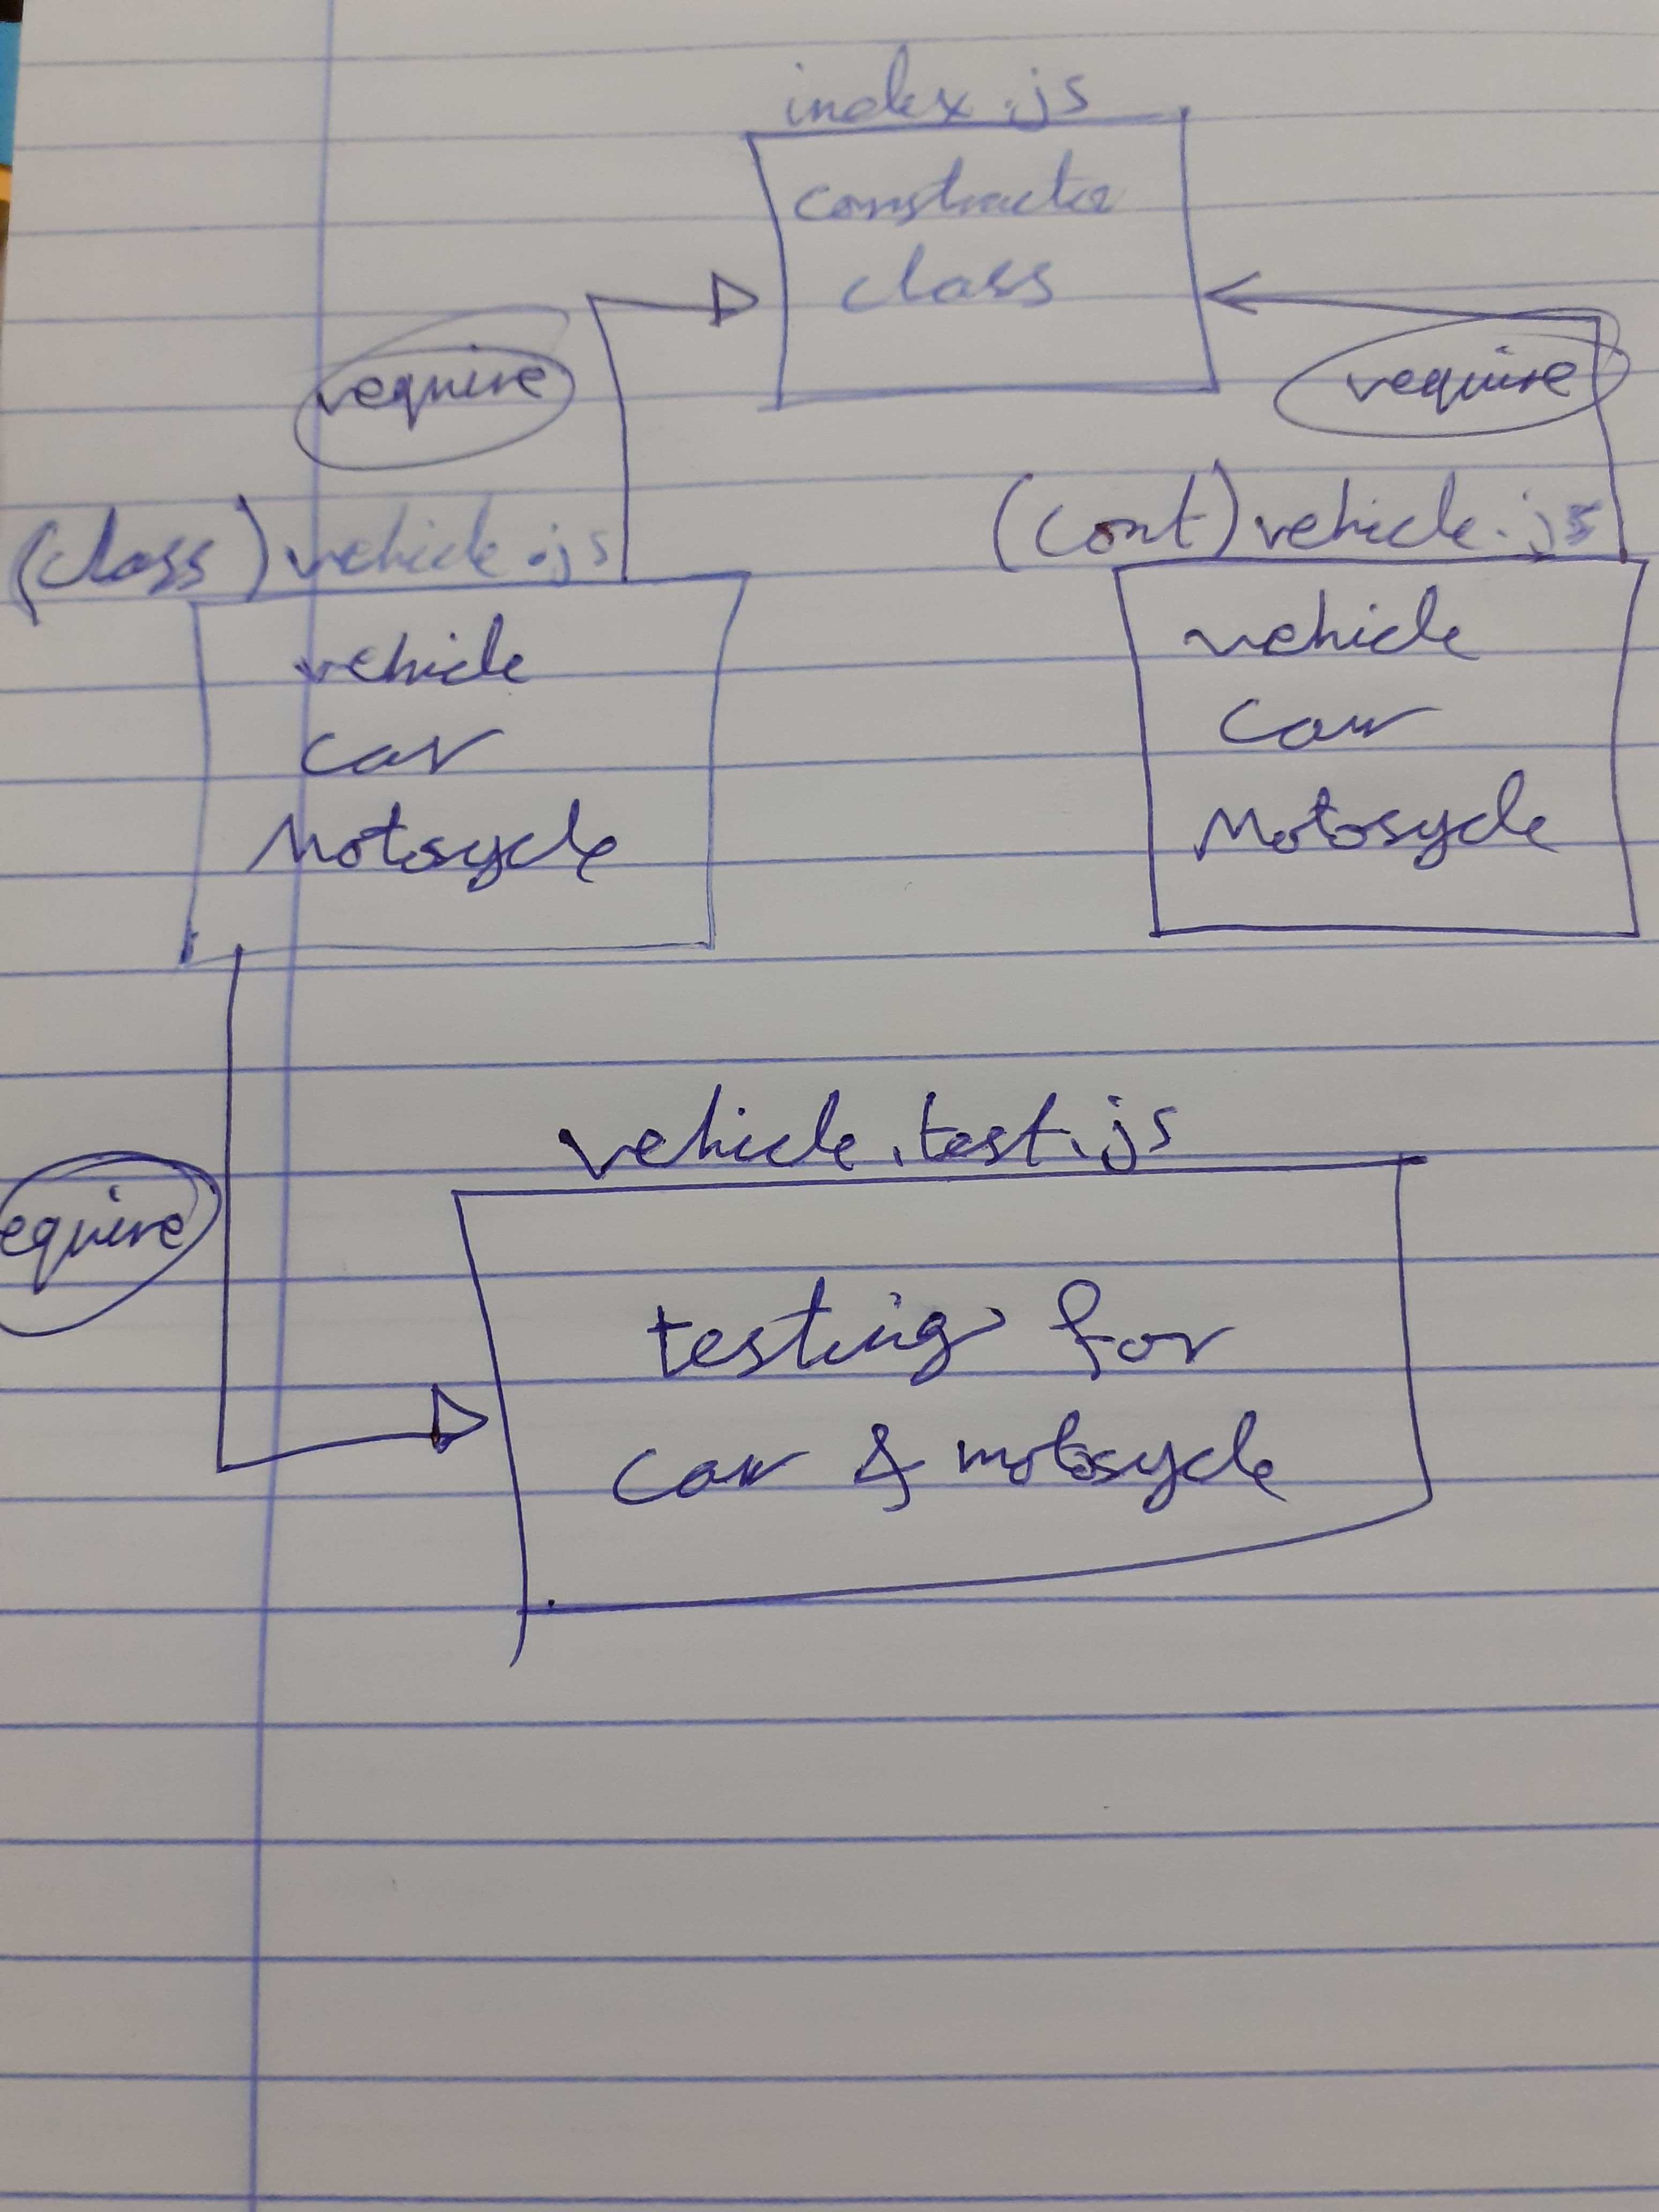 index.js
constructor
class
require
require
(class) vehicle.js
(cont) vehicle.js
vehicle
car
Motosycle
vehicle
car
Motosycle
vehicle.test.js
equire
testing for
car & motosycle